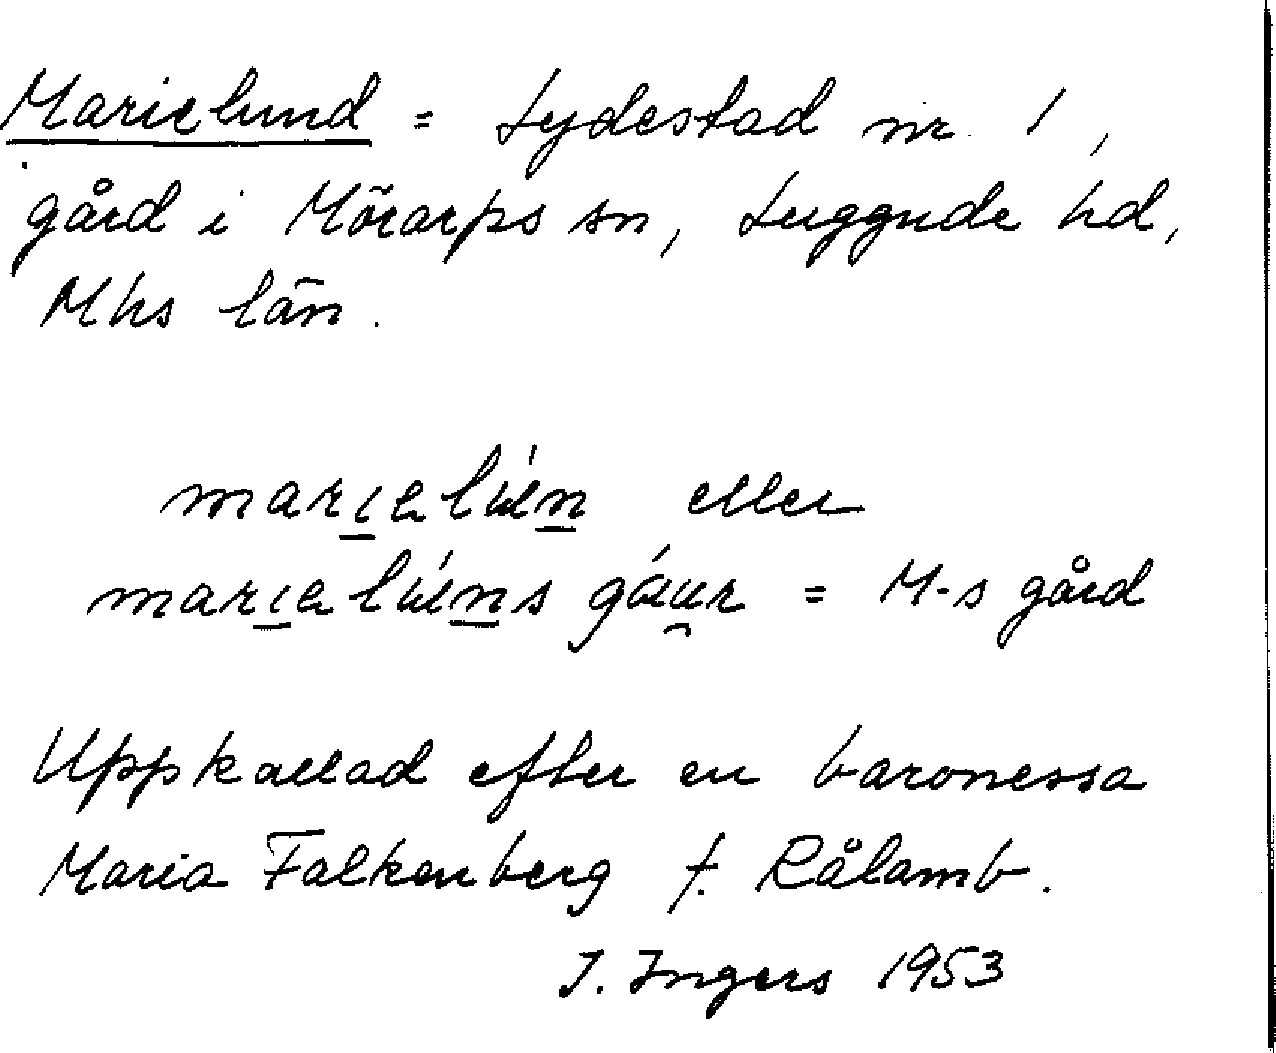 Marielund = Lydestad nr 1,
gård i Mörarps sn, Luggude hd,
Mhs län.
marıɐlúen eller
marıɐlúens gáur = M-s gård
Uppkallad efter en baronessa
Maria Falkenberg f. Rålamb.
I. Ingers 1953